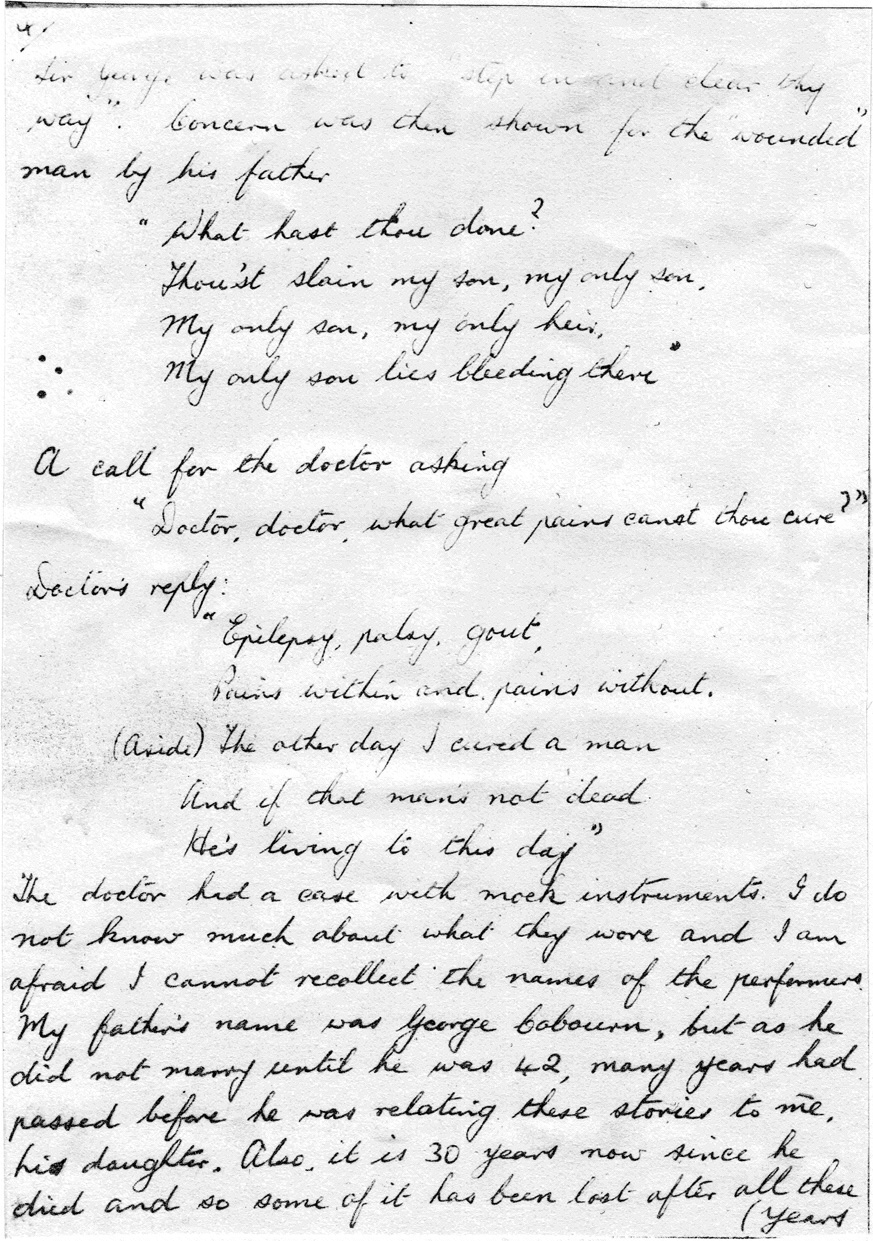 4/
Sir George was asked to "step in and clear thy
way". Concern was then shown for the "wounded"
man by his father
"What hast thou done?
Thou'st slain my son, my only son,
My only son, my only heir,
My only son lies bleeding there"
A call for the doctor asking
"Doctor, doctor, what great pains canst thou cure?"
Doctor's reply:
"Epilepsy, palsy, gout,
Pains within and pains without.
(Aside) The other day I cured a man
And if that man's not dead
He's living to this day"
The doctor had a case with mock instruments. I do
not know much about what they wore and I am
afraid I cannot recollect the names of the performers.
My father's name was George Cobourn, but as he
did not marry until he was 42, many years had
passed before he was relating these stories to me,
his daughter. Also, it is 30 years now since he
died and so some of it has been lost after all these
(years